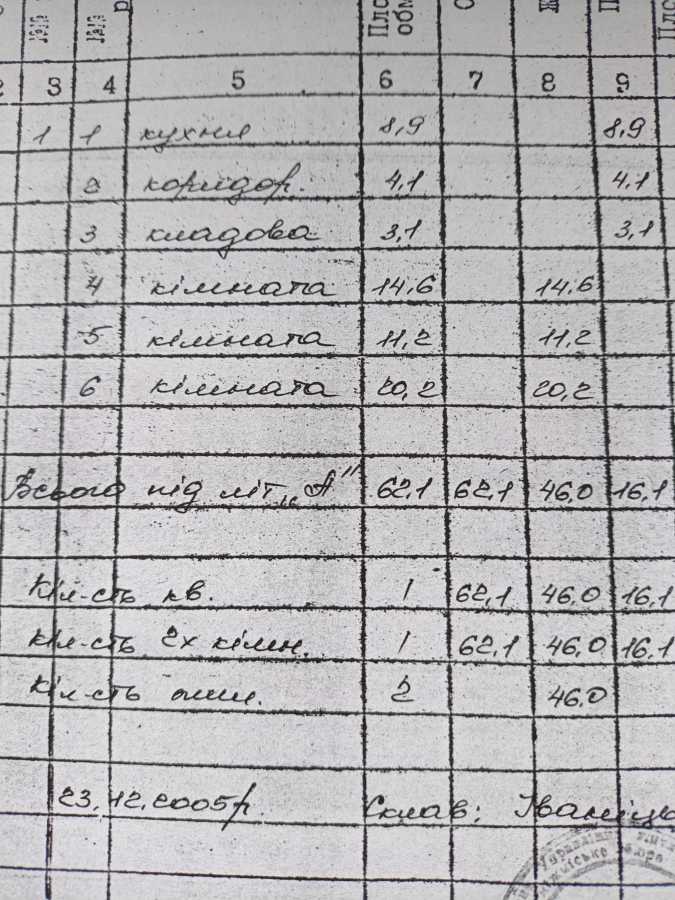 Пло
обм
2 3 4 5 6 7 8 9
1 1 кухня 8,9 8,9
2 коридор. 4,1 4,1
3 кладова 3,1 3,1
4 кімната 14,6 14,6
5 кімната 11,2 11,2
6 кімната 20,2 20,2
Всього під літ „А" 62,1 62,1 46,0 16,1
Кіл-сть кв. 1 62,1 46,0 16,1
кіл-сть 2х кімн. 1 62,1 46,0 16,1
кіл-сть жил. 2 46,0
23.12.2005р. Склав: Іваніц